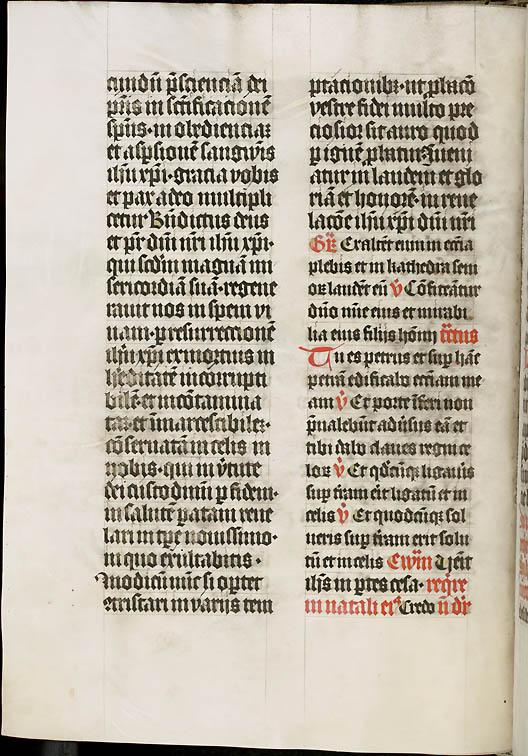 cundū p̄scienciā dei
pr̄is in sc̄tificacionē
sp̄us · in obedienciaꝫ
et asp̄sionē sangwīs
ih̄u xp̄i · gracia vobis
et pax a deo multipli
cetur Bn̄dictus deus
et pr̄ dn̄i nr̄i ih̄u xp̄i ·
qui scdm̄ magnā mi
sericordiam suā · regene
rauit nos in spem vi
uam · p resurrectionē
ih̄u xp̄i ex mortuis in
h̓editatē incorrupti
bilē et incōtamina
tā et ī marcescibileꝫ ·
cōseruatā in celis in
vobis · qui in v̓tute
dei custodimī p fidem ·
in salutē patam reue
lari in tp̄e nouissimo ·
in quo exultabitis ·
Modicū nūc si oportet
cōtristari in varijs tem
ptacionibꝫ · ut p̄bacō
vestre fidei multo pre
ciosior sit auro quod
p ignē p̄batur · īueni
atur in laudem et glo
riā et honorē · in reue
lacōe ih̄u xp̄i dn̄i nr̄i
Gr̄ Exaltēt eum in eccīa
plebis et in kathedra seni
oꝝ laudēt eū v̄ Cōfiteātur
dn̄o mīe eius et mirabi
lia eius filijs hōm̄ tr̄ctus
Tu es petrus et sup hāc
petrā edificabo eccīam me
am v̄ Et porte īferi non
p̄ualebūt aduˢus eā et
tibi dabo claues regni ce
loꝝ v̄ Et qd̄cūqꝫ ligauˢis
sup t̓ram er̄it ligatū et in
celis v̄ Et quodcūqꝫ sol
ueris sup t̓ram erit solu
tū et in celis Ewm̄ Vēit
ih̄s in p̄tes cesa · reqīre
in natali eiꝰ Credo n̄ dr̄